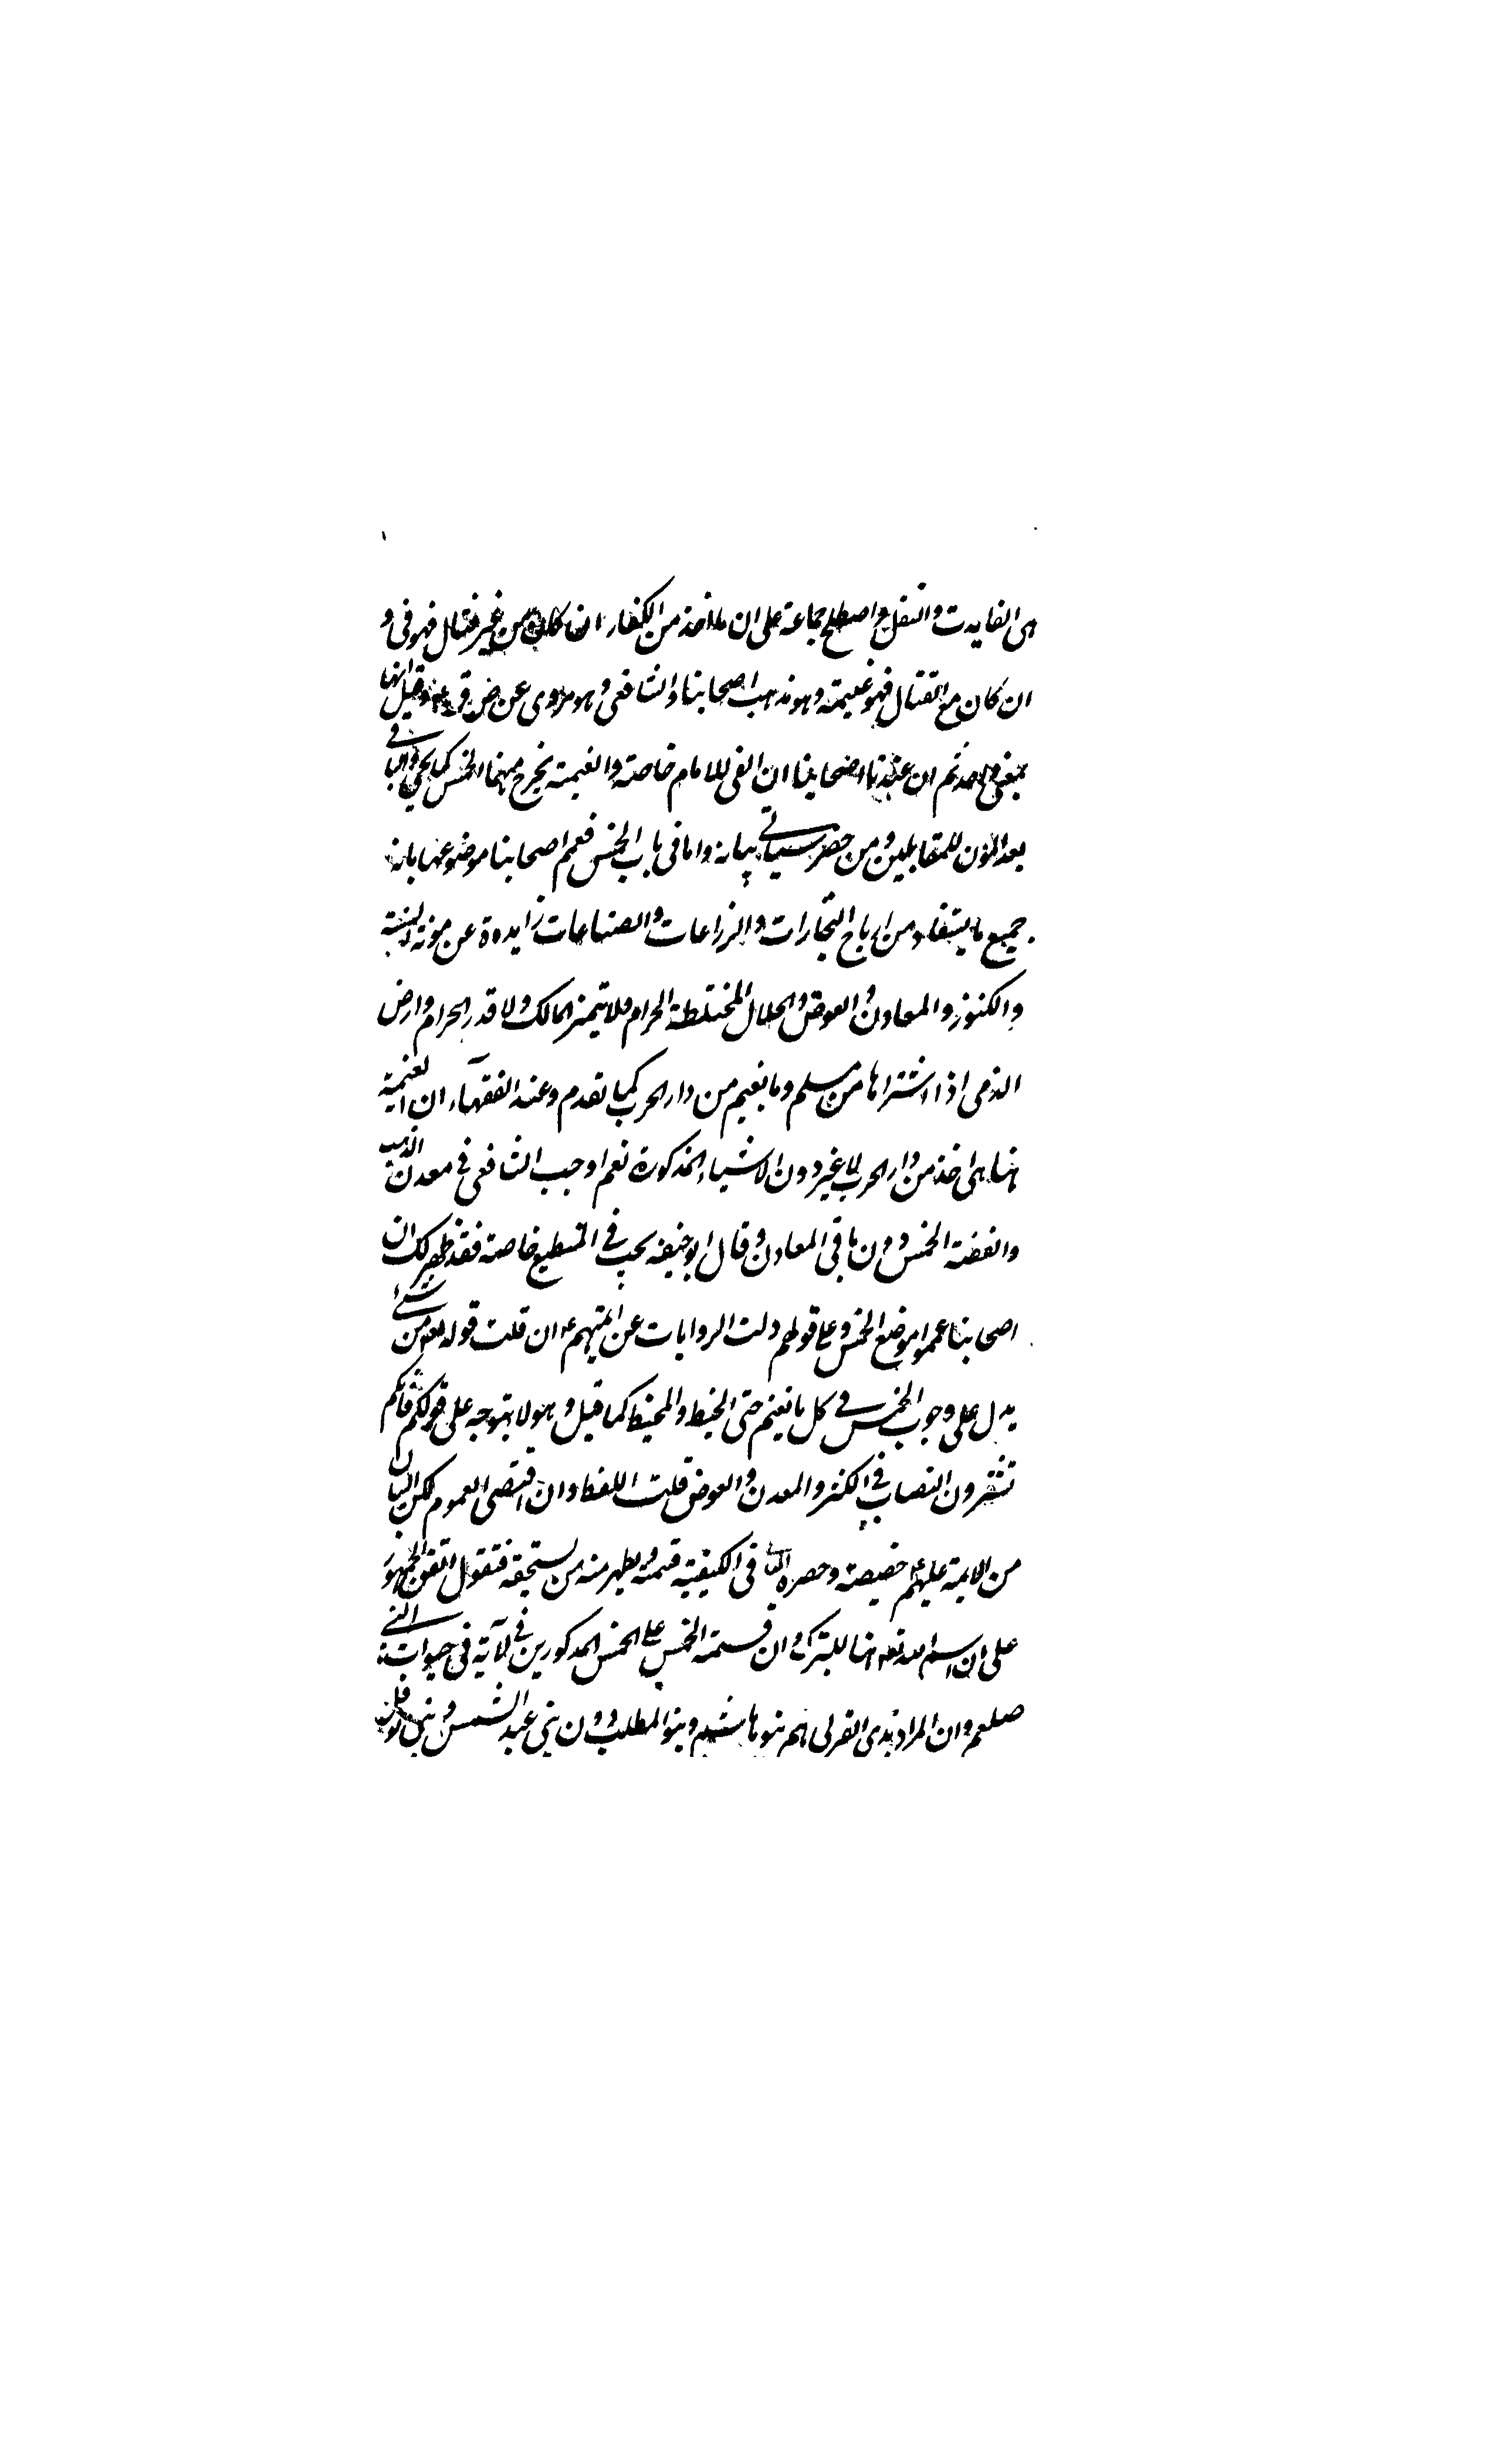 هى الفايدت والنفل واصطلح جماعة على ان ما اخذ من الكفار ان كان من غير قتال فهو فى و
ان كان مع القتال فهو غنيمة وهو مذهب اصحابنا والشافعى وهو مروى عن ض ق ع وقيل انها
بمعنى واحد ثم ان عند اصحابنا ان الفى للامام خاصة والغنيمة يخرج منها الخمس كما يجى والباقى
بعد المؤن للمقاتلين ومن حضر سياتى بيانه واما فى باب الخمس فعمم اصحابنا موضوعها بانه
جميع ما يستفاد من ارباح التجارات والزراعات والصناعات زايدة عن مونة السنة
والكنوز والمعادن والغوص والحلال المختلطة الحرام ولا يتميز المالك ولا قدر الحرام وارض
الذمى اذا اشتراها من مسلم وما يغنم من دار الحرب كما تقدم وعند الفقهاء ان الغنيمة
هنا هى اخذ من دار الحرب لا غير دون الاشياء المذكورة نعم اوجب الشافعى فى معدن الذهب
والفضة الخمس دون باقى المعادن وقال ابو حنيفه يجب فى المنطبع خاصة فقد ظهر لك ان
اصحابنا عمموا موضع الخمس وعلى قولهم دلت الروايات عن ائمتهم ع ان قلت قوله تع من شئ
يدل على وجوب الخمس فى كل ما يغنم حتى الخيط والمخيط كما قيل وهو لا يتوجه على قولكم فانكم
تشترون النصاب فى الكنز والمعدن والغوص قلت اللفظ وان اقتضى العموم لكن البيان
من الايمة عليهم ع خصصه وحصره الثا فى الكيفية قسمته ويظهر منه من يستحقه فنقول اتفق الجمهور
على ان اسم الله تع هنا للتبرك وان قسمة الخمس على الخمس المذكورين فى الآية فى حيوات النبى
صلعم وان المراد بذى القربى هم بنو هاشم وبنو المطلب دون بنى عبد الشمس وبنى نوفل